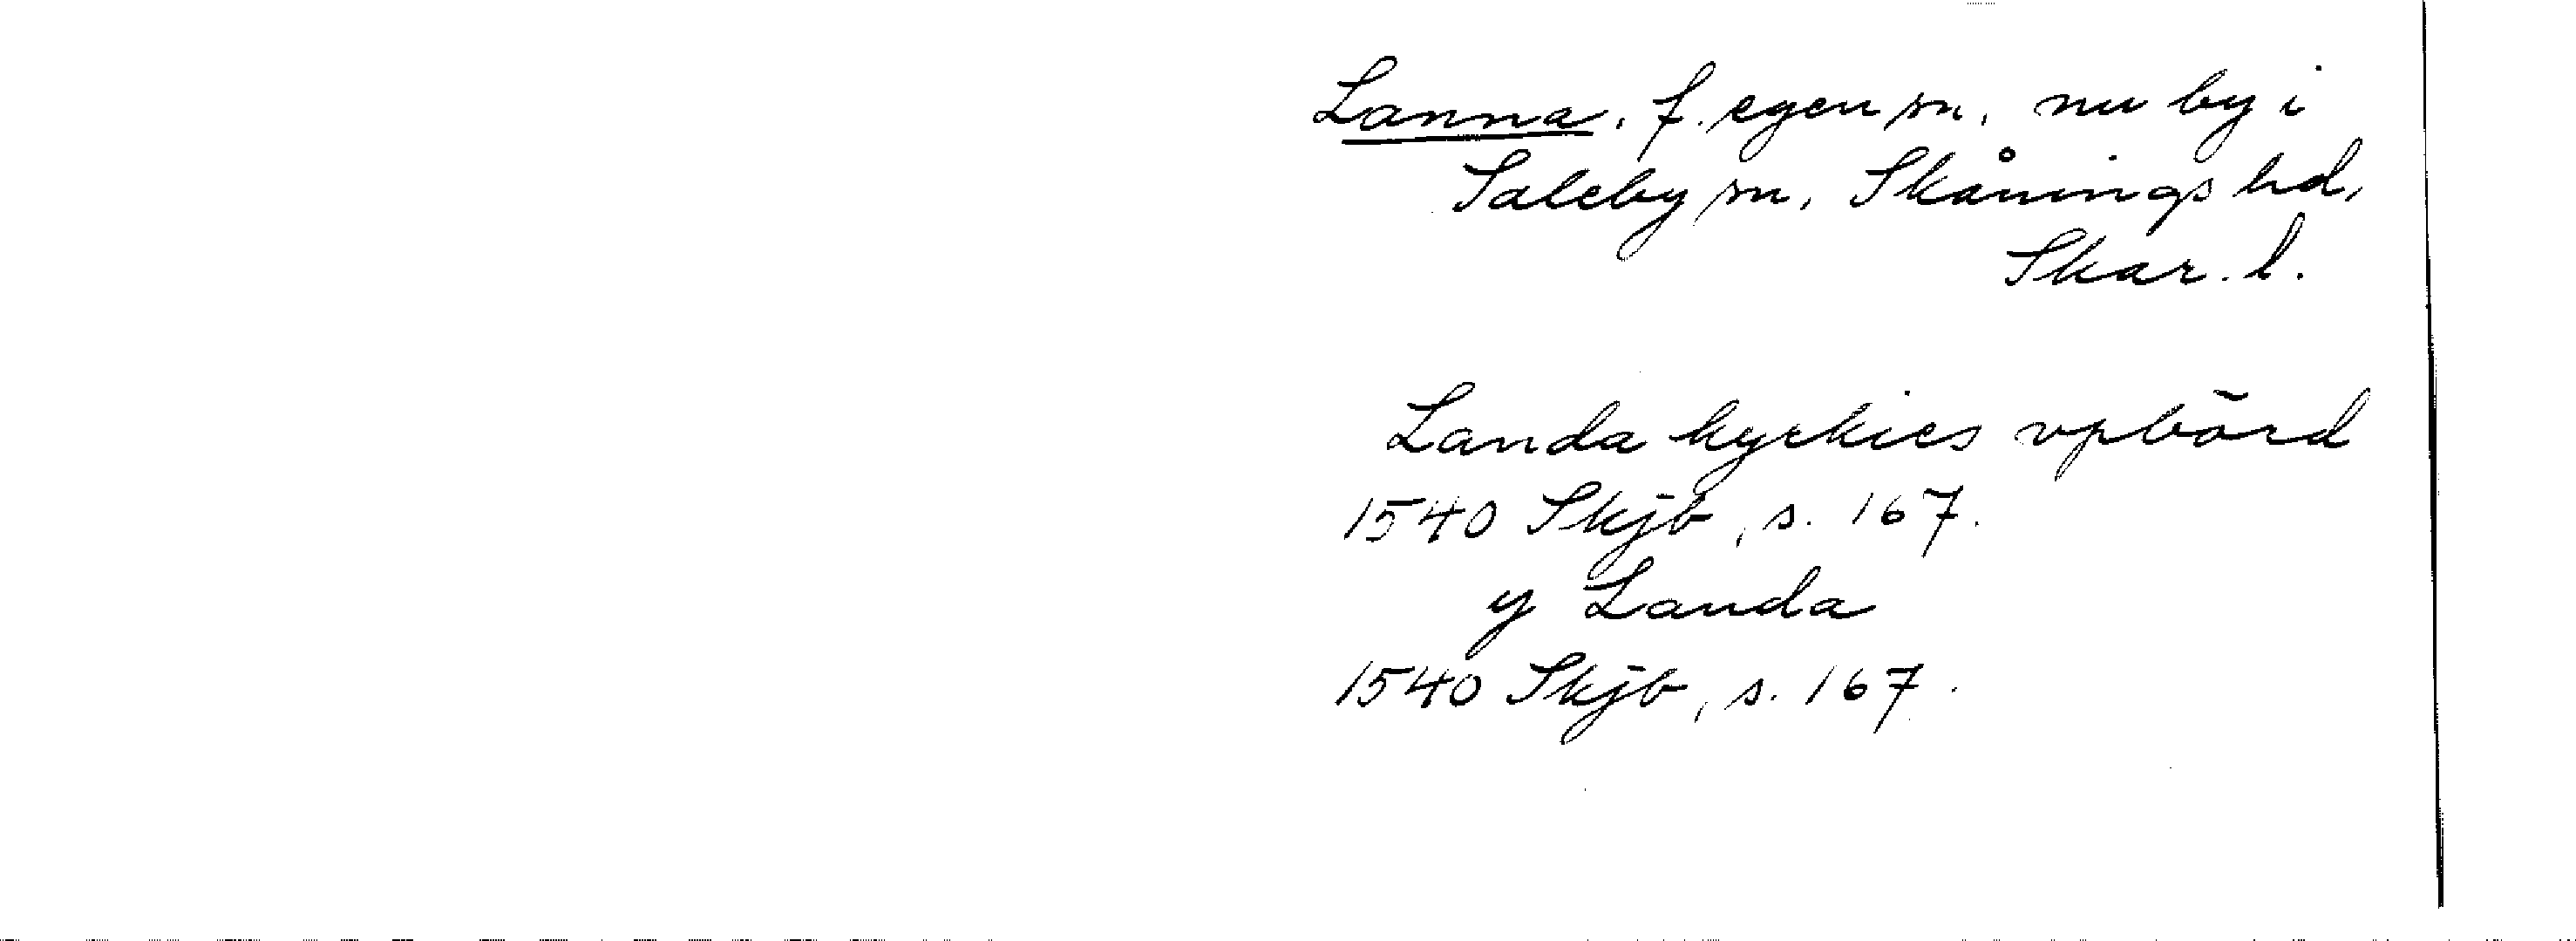 Lanna, f. egen sn, nu by i
Saleby sn, Skånings hd,
Skar. l.
Landa kyrkies vpbörd
1540 Skjb, s. 167.
y Landa
1540 Skjb, s. 167.